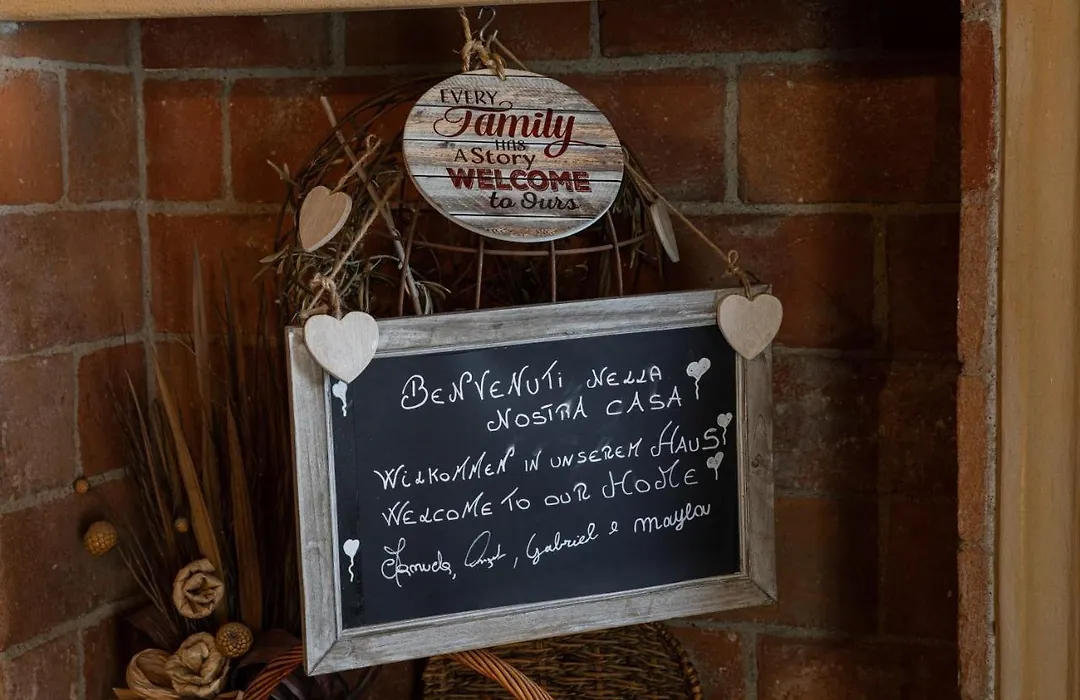 EVERY
Family
HAS
A Story
WELCOME
to Ours
BENVENUTI NELLA
NOSTRA CASA
WILLKOMMEN IN UNSEREM HAUS
WELCOME TO OUR HOME
Gabriel e Mayla